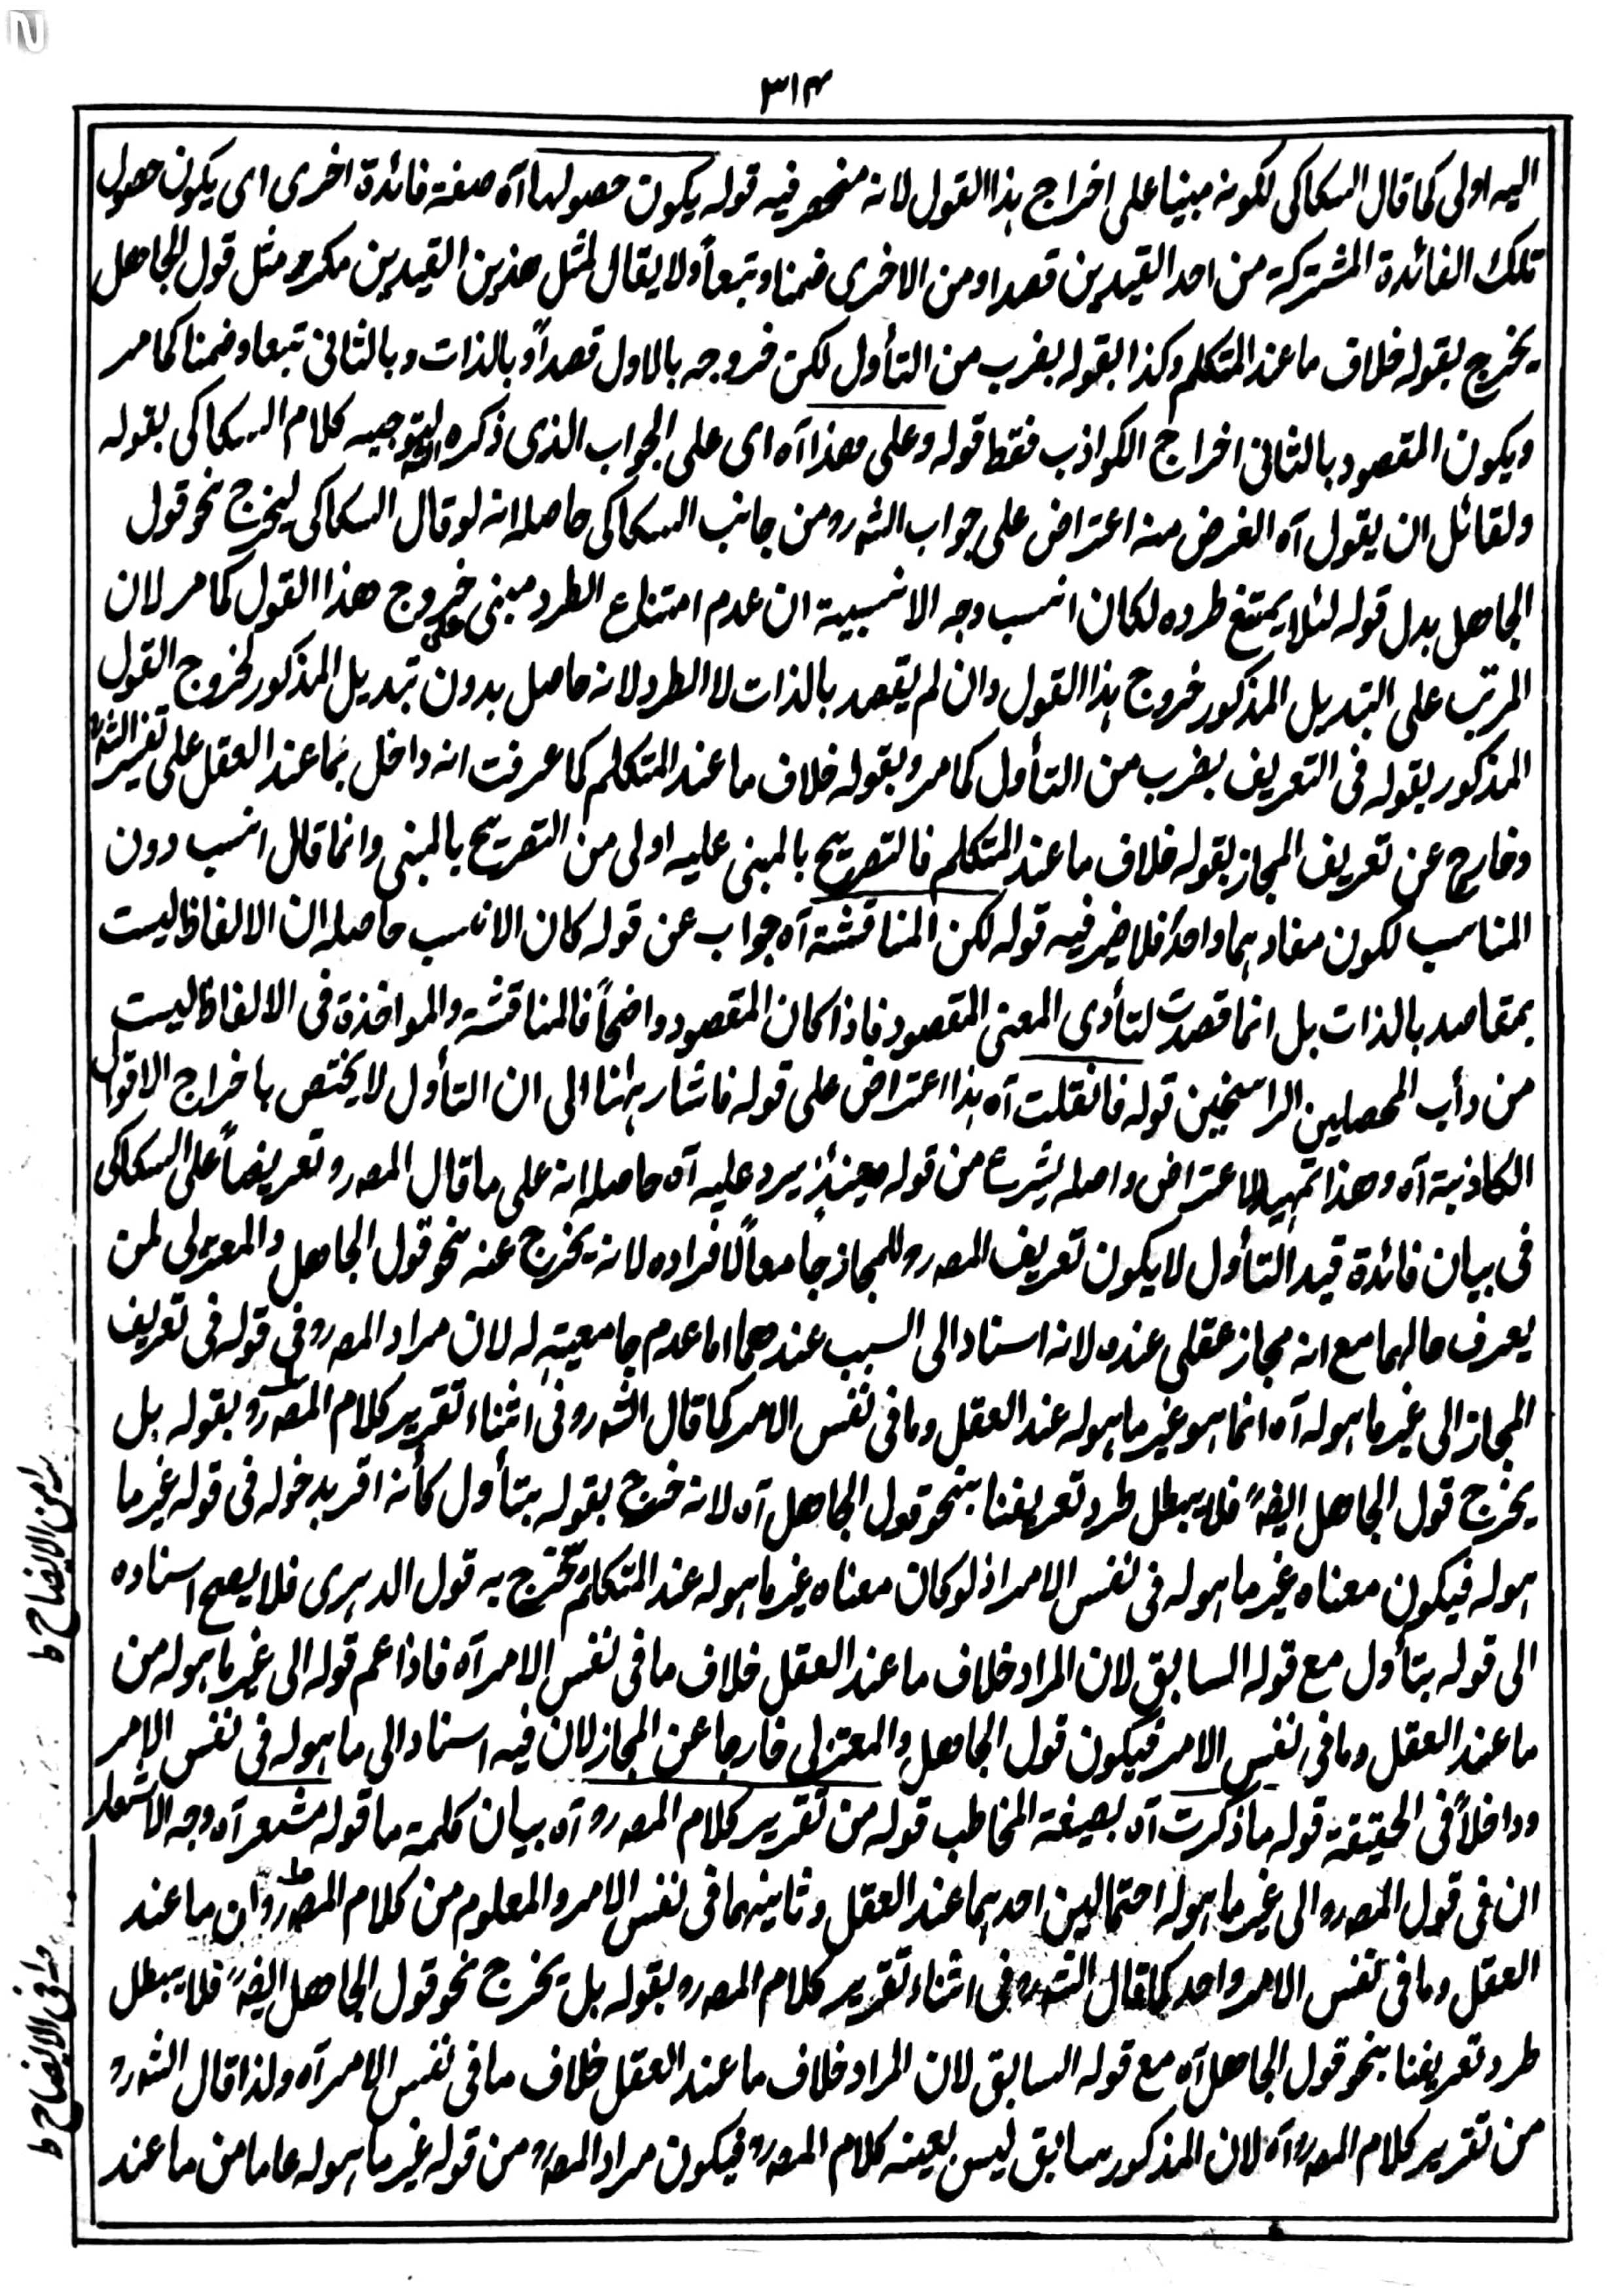 N
٣١٤
اليه اولى كما قال السكاكى لكونه مبنيا على اخراج هذا القول لانه منحصر فيه قوله يكون حصولها آه صفة فائدة اخرى اى يكون حصول
تلك الفائدة المشتركة من احد القيدين قصدا ومن الاخرى ضمنا وتبعاً ولا يقال لمثل هذين القيدين مكرر مثل قول الجاهل
يخرج بقوله خلاف ما عند المتكلم وكذا بقوله بضرب من التأول لكن خروجه بالاول قصداً وبالذات وبالثانى تبعا وضمنا كما مر
ويكون المقصود بالثانى اخراج الكواذب فقط قوله وعلى هذا آه اى على الجواب الذى ذكره لتوجيه كلام السكاكى بقوله
ولقائل ان يقول آه الغرض منه اعتراض على جواب الشه رو من جانب السكاكى حاصله انه لو قال السكاكى ليخرج نحو قول
الجاهل بدل قوله لئلا يمتنع طرده لكان انسب وجه الانسبية ان عدم امتناع الطرد مبنى على خروج هذا القول كما مر لان
المرتب على التبديل المذكور خروج هذا القول وان لم يقصد بالذات لا الطرد لانه حاصل بدون تبديل المذكور لخروج القول
المذكور بقوله فى التعريف بضرب من التأول كما مر وبقوله خلاف ما عند المتكلم كما عرفت انه داخل بما عند العقل على تفسير الشه
وخارج عن تعريف المجاز بقوله خلاف ما عند المتكلم فالتصريح بالمبنى عليه اولى من التصريح بالمبنى وانما قال انسب دون
المناسب لكون مفادهما واحداً فلا ضير فيه قوله لكن المناقشة آه جواب عن قوله كان الانسب حاصله ان الالفاظ ليست
بمقاصد بالذات بل انما قصدت لتأدى المعنى المقصود فاذا كان المقصود واضحاً فالمناقشة والمواخذة فى الالفاظ ليست
من دأب المحصلين الراسخين قوله فان قلت آه هذا اعتراض على قوله فاشار ههنا الى ان التأول لا يختص باخراج الاقوال
الكاذبة آه وهذا تمهيد الاعتراض واصله يشرع من قوله حينئذٍ يرد عليه آه حاصله انه على ما قال المصه رو تعريضاً على السكاكى
فى بيان فائدة قيد التأول لا يكون تعريف المصه رو للمجاز جامعاً لافراده لانه يخرج عنه نحو قول الجاهل والمعتزلى لمن
يعرف حالهما مع انه مجاز عقلى عنده لانه اسناد الى السبب عندهما اما عدم جامعيته له لان مراد المصه رو فى قوله فى تعريف
المجاز الى غير ما هو له آه انما هو غير ما هو له عند العقل وما فى نفس الامر كما قال الشه رو فى اثناء تقرير كلام المصه رو بقوله بل
يخرج قول الجاهل ايضه فلا يبطل طرد تعريفنا بنحو قول الجاهل آه لانه خرج بقوله بتأول كأنه اقر بدخوله فى قوله غير ما
هو له فيكون معناه غير ما هو له فى نفس الامر اذ لو كان معناه غير ما هو له عند المتكلم تخرج به قول الدهرى فلا يصح اسناده
الى قوله بتأول مع قوله السابق لان المراد خلاف ما عند العقل خلاف ما فى نفس الامر آه فاذا عم قوله الى غير ما هو له من
ما عند العقل وما فى نفس الامر فيكون قول الجاهل والمعتزلى خارجا عن المجاز لان فيه اسناد الى ما هو له فى نفس الامر
وداخلاً فى الحقيقة قوله ما ذكرت آه بصيغة المخاطب قوله من تقرير كلام المصه رو آه بيان كلمة ما قوله مشعر آه وجه الاشعار
ان فى قول المصه رو الى غير ما هو له احتمالين احدهما عند العقل وثانيهما فى نفس الامر والمعلوم من كلام المصه رو ان ما عند
العقل وما فى نفس الامر واحد كما قال الشه رو فى اثناء تقرير كلام المصه رو بقوله بل يخرج نحو قول الجاهل ايضه فلا يبطل
طرد تعريفنا بنحو قول الجاهل آه مع قوله السابق لان المراد خلاف ما عند العقل خلاف ما فى نفس الامر آه ولذا قال الشه رو
من تقرير كلام المصه رو آه لان المذكور سابق ليس بعينه كلام المصه رو فيكون مراد المصه رو من قوله غير ما هو له عاما من ما عند
من الايضاح ط
فى الايضاح ط